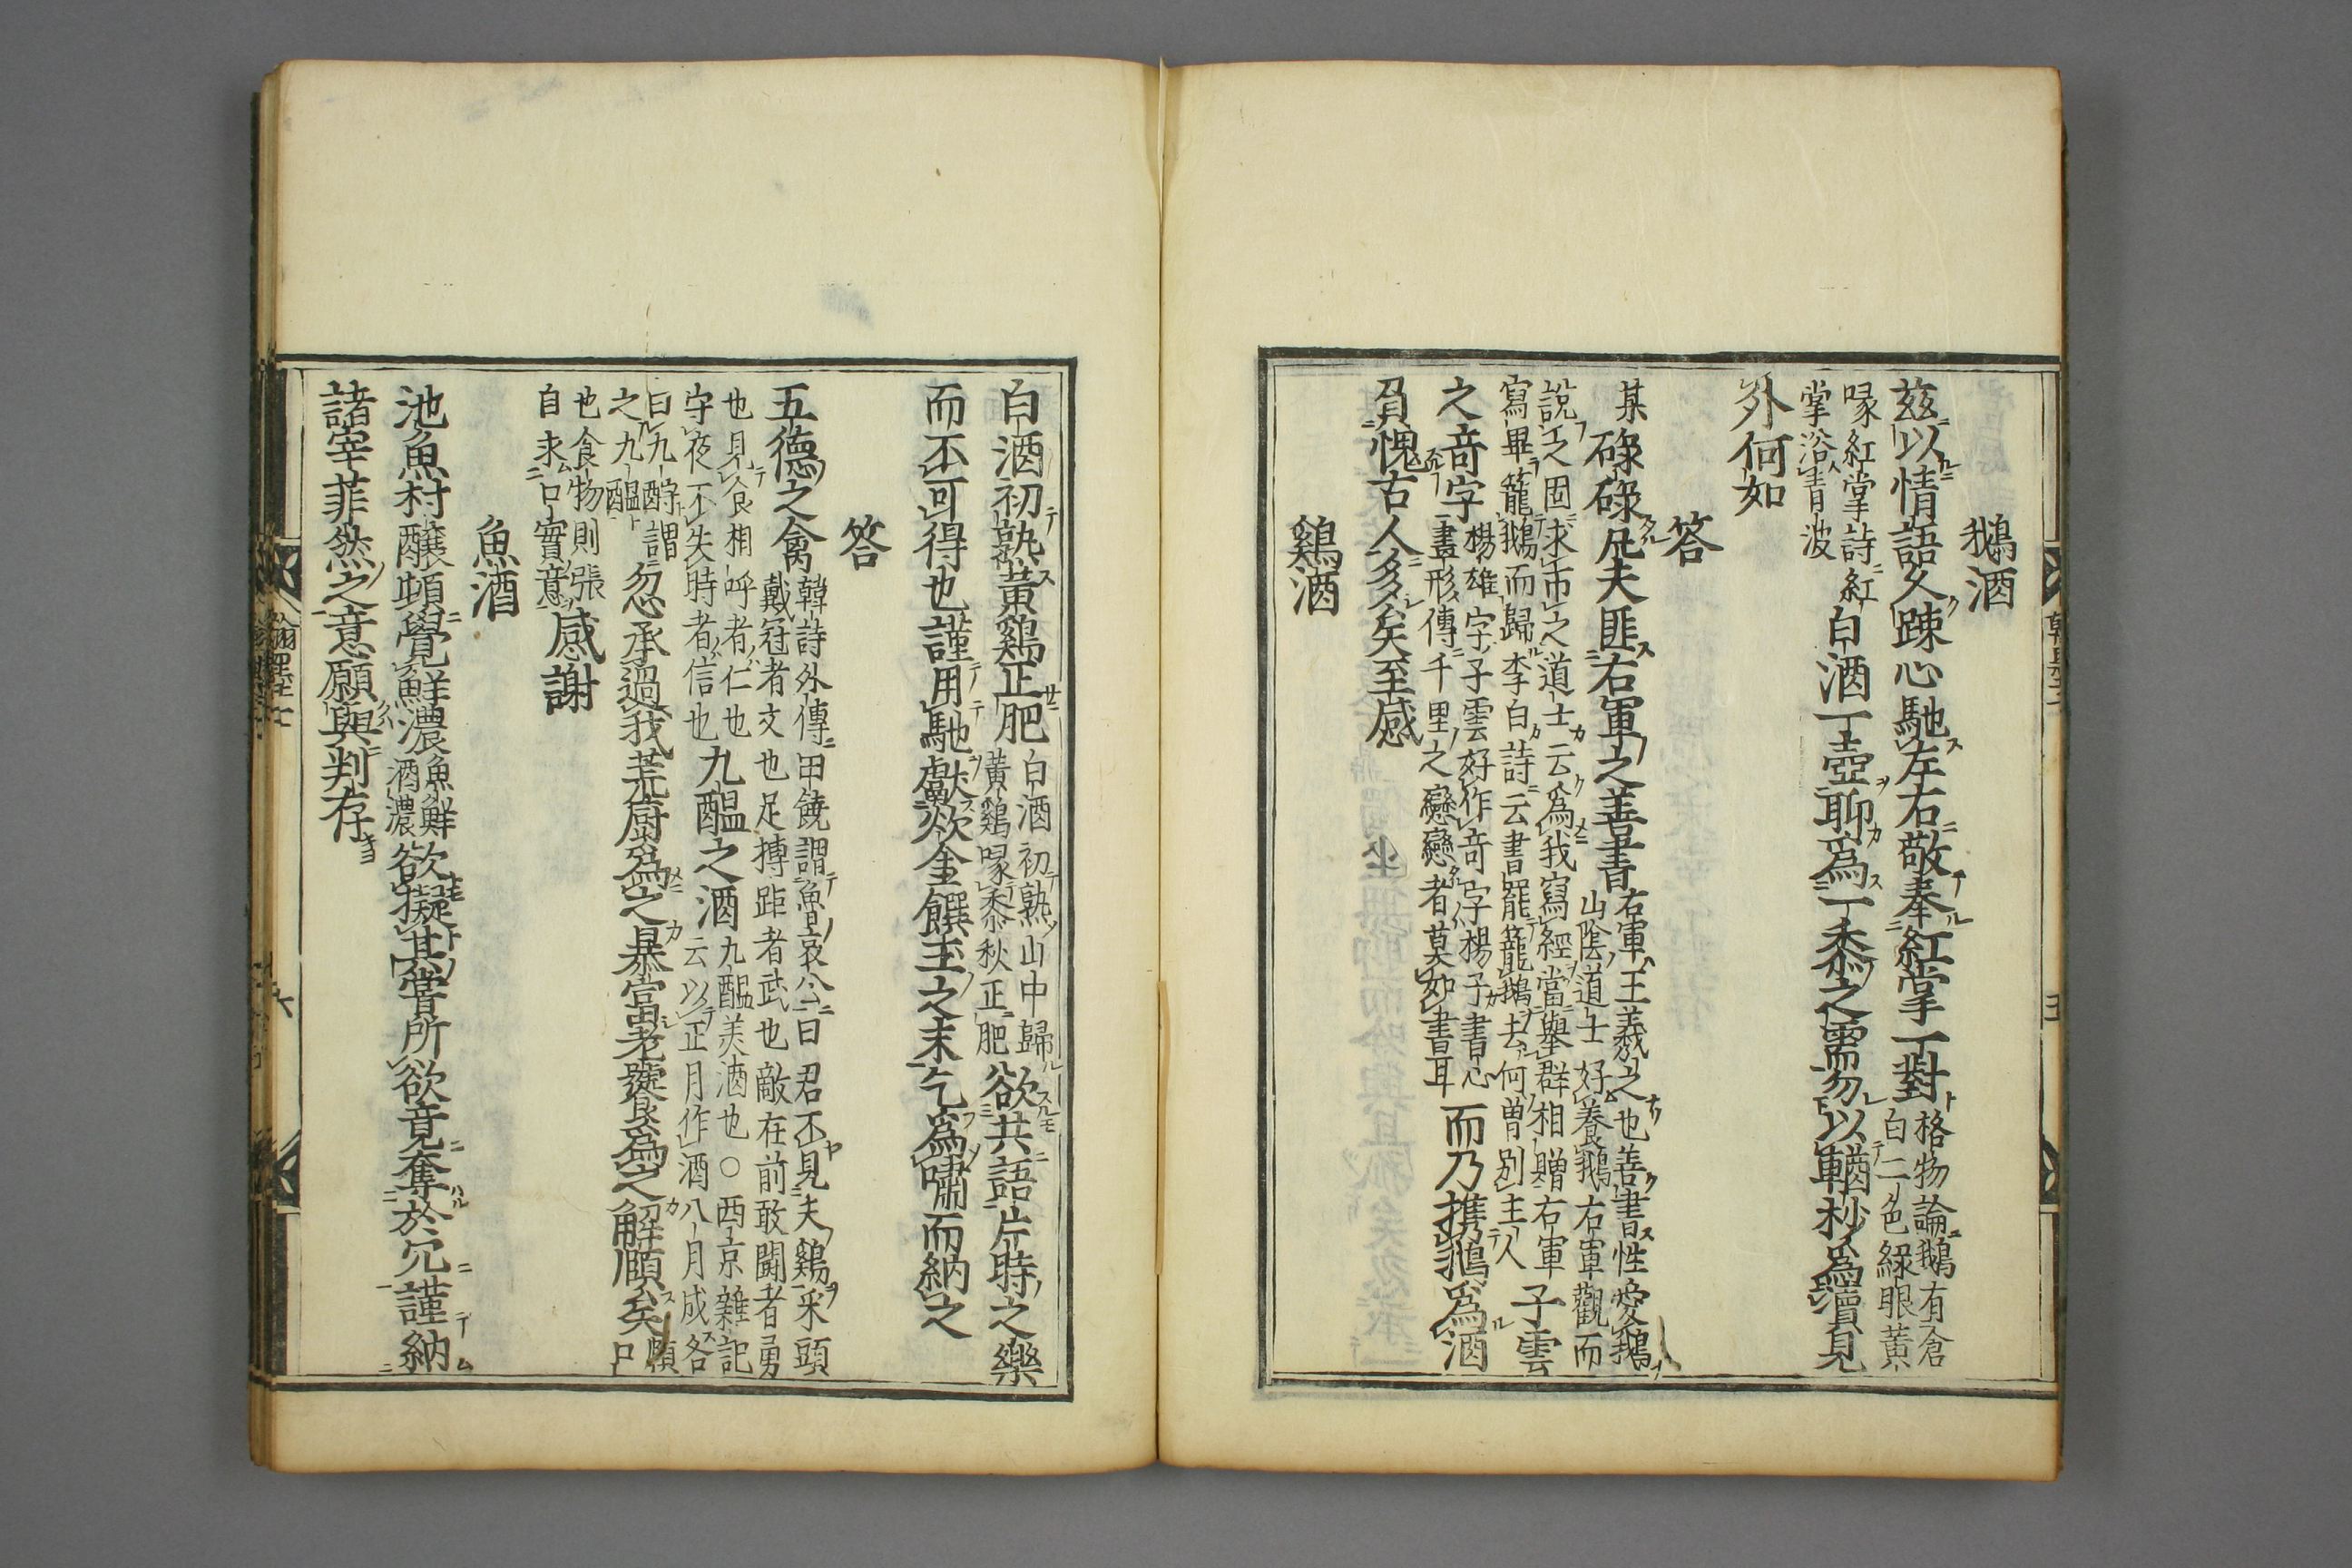 鵝酒
茲以情語久踈心馳左右敬奉紅掌一對
格物論鵝有倉
白二色緑眼黄
喙紅掌詩紅
掌浴青波
白酒一壺聊爲一黍之需勿以輶杪爲瀆見
外何如
答
某碌碌凡夫匪右軍之善書
右軍王羲之也善書性愛鵝
山陰道士好養鵝右軍觀而
説之固求市之道士云爲我寫經當擧群相贈右軍
寫畢籠鵝而歸李白詩云書罷籠鵝去何曽別主人
子雲
之竒字
楊雄字子雲好作竒字楊子書心
畫形傳千里之戀戀者莫如書耳
而乃携鵝爲酒
負愧古人多矣至感
鷄酒
白酒初熟黄鷄正肥
白酒初熟山中歸
黄鷄喙黍秋正肥
欲共語片時之樂
而不可得也謹用馳獻歘全饌至之末乞爲哂而納之
答
五德之禽
韓詩外傳田饒謂魯哀公曰君不見夫鷄乎頭
戴冠者文也足搏距者武也敵在前敢闘者勇
也見食相呼者仁也
守夜不失時者信也
九醖之酒
九醖美酒也○西京雜記
云以正月作酒八月成各
曰九酧謂
之九醖
忽承過我荒厨爲之暴富老饕爲之解頤矣
頤口
也食物則張
自求口實意
感謝
魚酒
池魚村釀頓覺鮮濃
魚鮮
酒濃
欲擬其嘗所欲竟奪於冗謹納
諸宰菲然之意願與判存